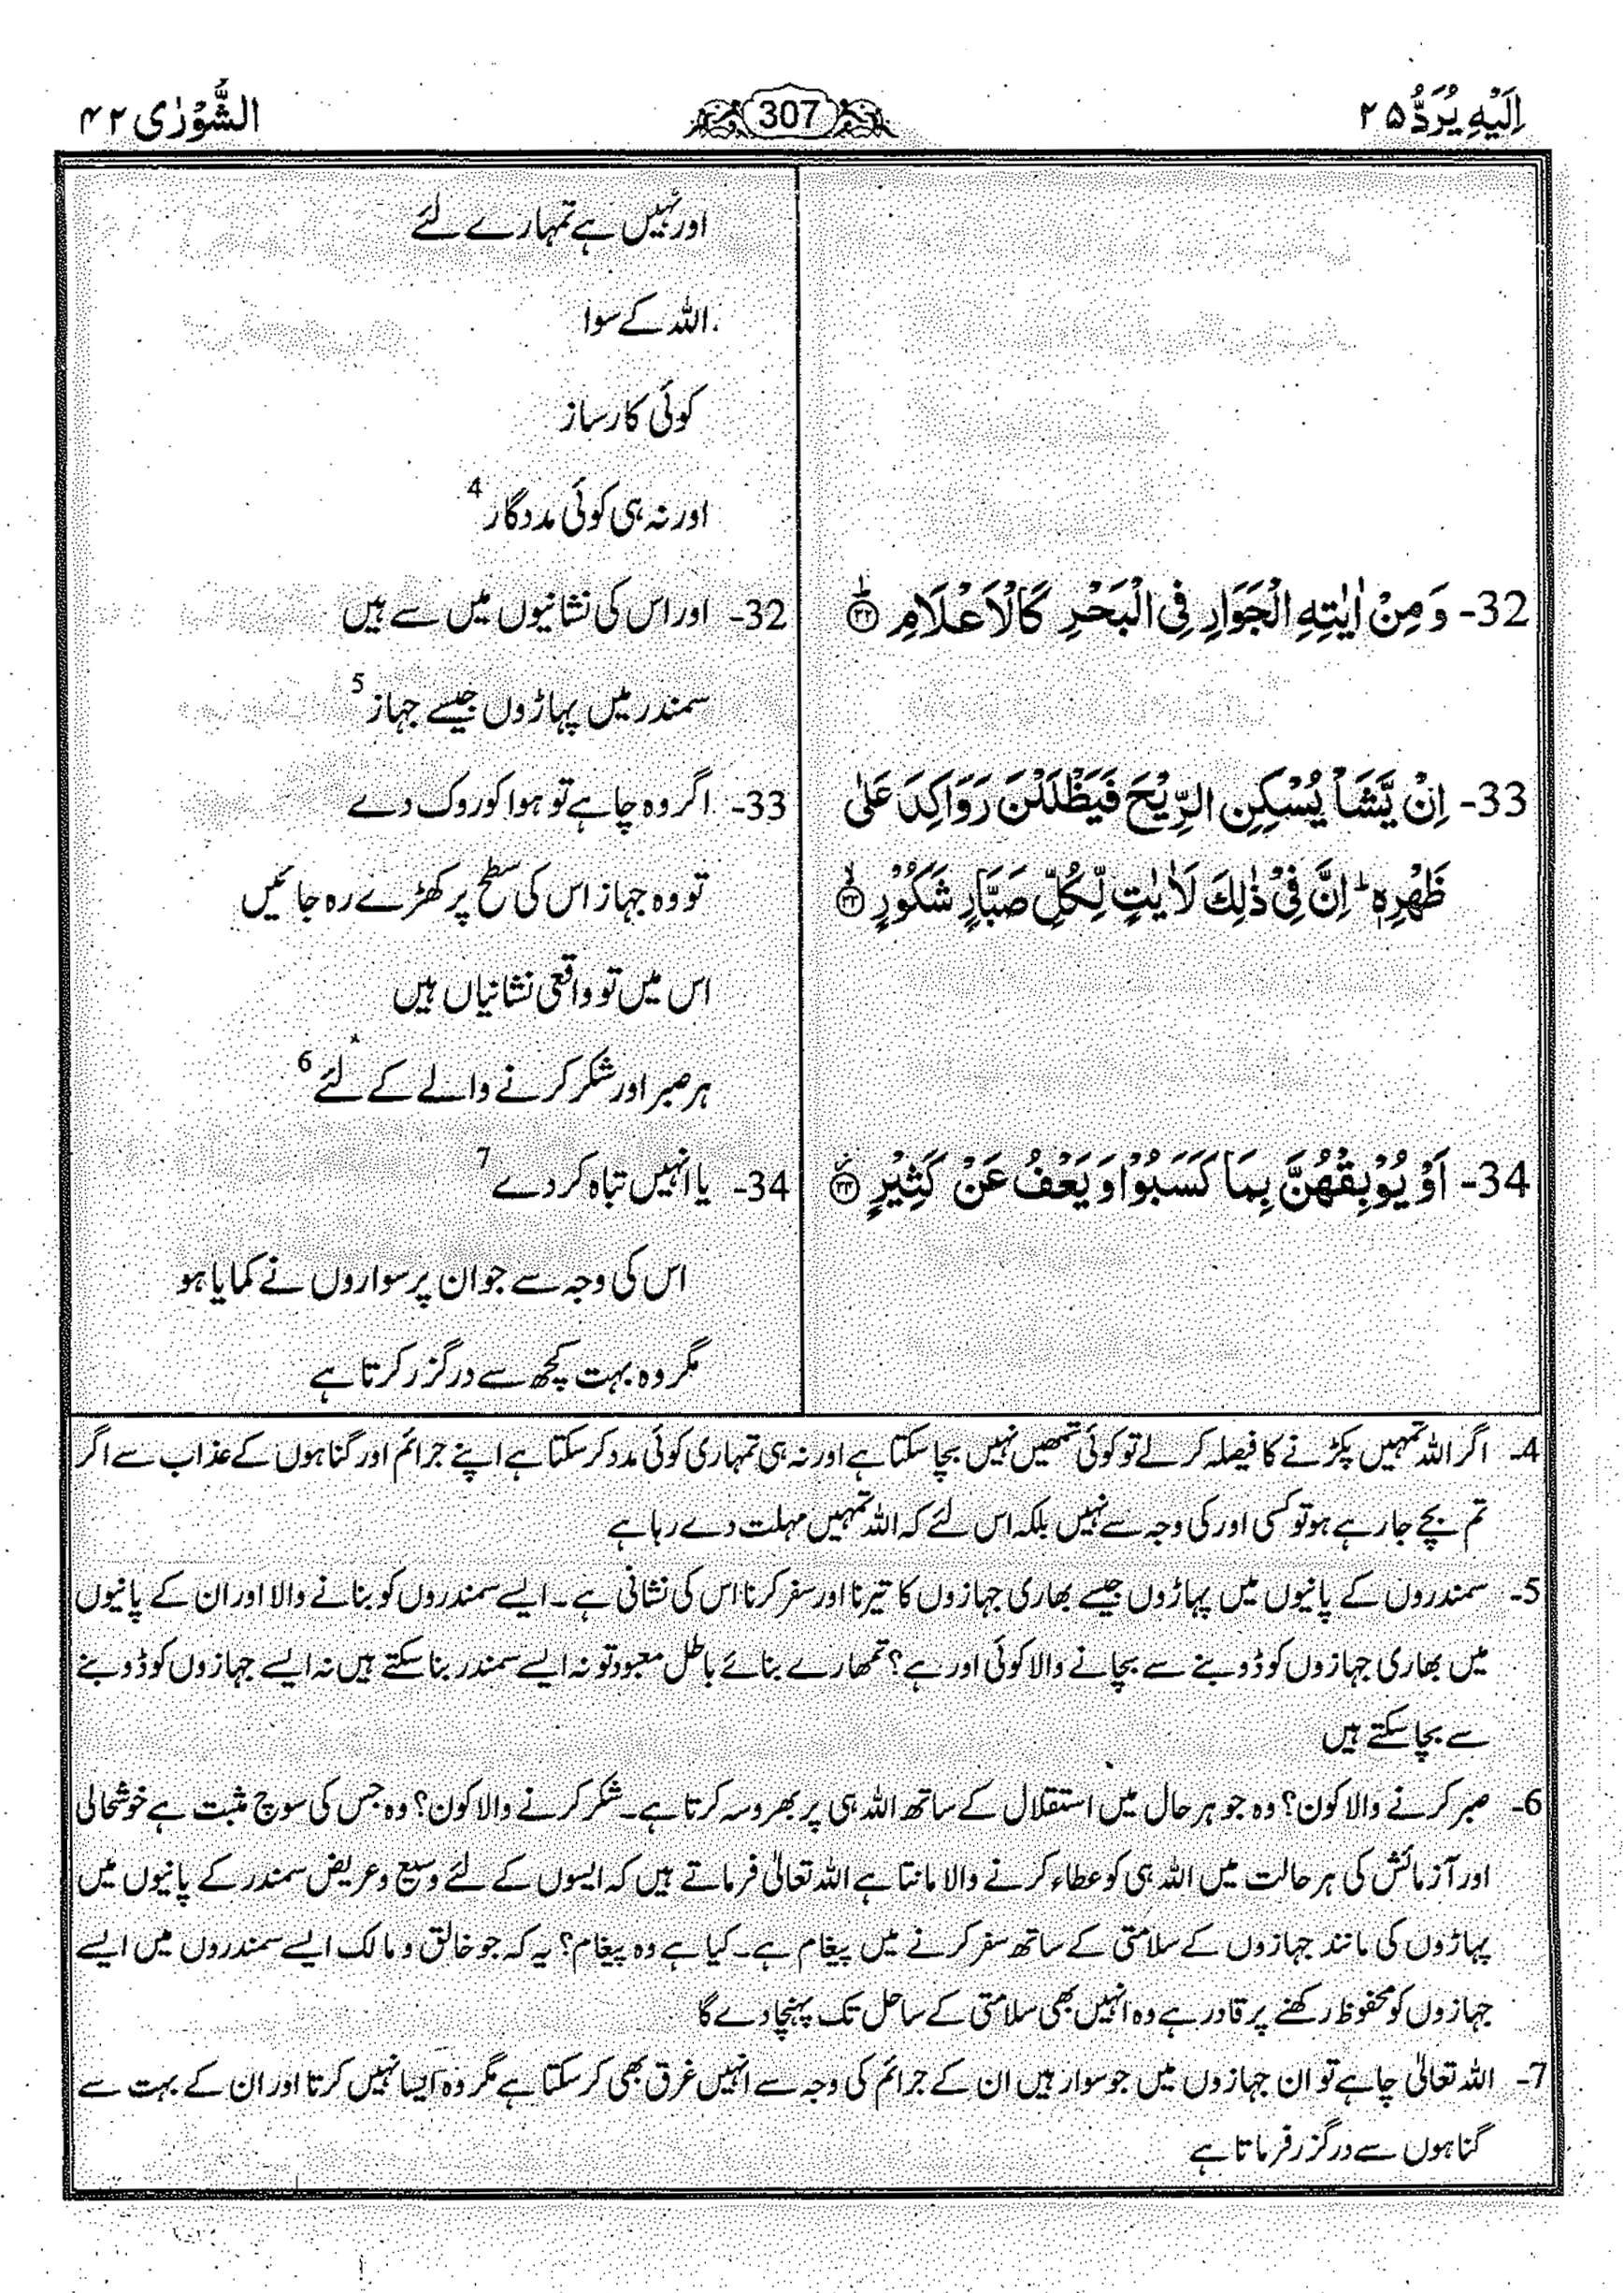 اِلَیْہِ یُرَدُّ ۲۵
307
الشُّوْرٰی ۴۲
اور نہیں ہے تمہارے لئے
اللہ کے سوا
کوئی کارساز
اور نہ ہی کوئی مددگار 4
32- وَ مِنْ اٰیٰتِهِ الْجَوَارِ فِی الْبَحْرِ کَالْاَعْلَامِ ﴿۳۲﴾
32- اور اس کی نشانیوں میں سے ہیں
سمندر میں پہاڑوں جیسے جہاز 5
33- اِنْ یَّشَاْ یُسْکِنِ الرِّیْحَ فَیَظْلَلْنَ رَوَاکِدَ عَلٰی
ظَهْرِهٖ ؕ اِنَّ فِیْ ذٰلِکَ لَاٰیٰتٍ لِّکُلِّ صَبَّارٍ شَکُوْرٍ ﴿۳۳﴾
33- اگر وہ چاہے تو ہوا کو روک دے
تو وہ جہاز اس کی سطح پر کھڑے رہ جائیں
اس میں تو واقعی نشانیاں ہیں
ہر صبر اور شکر کرنے والے کے لئے 6
34- اَوْ یُوْبِقْهُنَّ بِمَا کَسَبُوْا وَ یَعْفُ عَنْ کَثِیْرٍ ﴿۳۴﴾
34- یا انہیں تباہ کر دے 7
اس کی وجہ سے جو ان پر سواروں نے کمایا ہو
مگر وہ بہت کچھ سے درگزر کرتا ہے
4- اگر اللہ تمہیں پکڑنے کا فیصلہ کر لے تو کوئی تمھیں نہیں بچا سکتا ہے اور نہ ہی تمہاری کوئی مدد کر سکتا ہے اپنے جرائم اور گناہوں کے عذاب سے اگر
تم بچے جا رہے ہو تو کسی اور کی وجہ سے نہیں بلکہ اس لئے کہ اللہ تمہیں مہلت دے رہا ہے
5- سمندروں کے پانیوں میں پہاڑوں جیسے بھاری جہازوں کا تیرنا اور سفر کرنا اس کی نشانی ہے۔ ایسے سمندروں کو بنانے والا اور ان کے پانیوں
میں بھاری جہازوں کو ڈوبنے سے بچانے والا کوئی اور ہے؟ تمھارے بنائے باطل معبود تو نہ ایسے سمندر بنا سکتے ہیں نہ ایسے جہازوں کو ڈوبنے
سے بچا سکتے ہیں
6- صبر کرنے والا کون؟ وہ جو ہر حال میں استقلال کے ساتھ اللہ ہی پر بھروسہ کرتا ہے۔ شکر کرنے والا کون؟ وہ جس کی سوچ مثبت ہے خوشحالی
اور آزمائش کی ہر حالت میں اللہ ہی کو عطاء کرنے والا مانتا ہے اللہ تعالیٰ فرماتے ہیں کہ ایسوں کے لئے وسیع و عریض سمندر کے پانیوں میں
پہاڑوں کی مانند جہازوں کے سلامتی کے ساتھ سفر کرنے میں پیغام ہے۔ کیا ہے وہ پیغام؟ یہ کہ جو خالق و مالک ایسے سمندروں میں ایسے
جہازوں کو محفوظ رکھنے پر قادر ہے وہ انہیں بھی سلامتی کے ساحل تک پہنچا دے گا
7- اللہ تعالیٰ چاہے تو ان جہازوں میں جو سوار ہیں ان کے جرائم کی وجہ سے انہیں غرق بھی کر سکتا ہے مگر وہ ایسا نہیں کرتا اور ان کے بہت سے
گناہوں سے درگزر فرماتا ہے